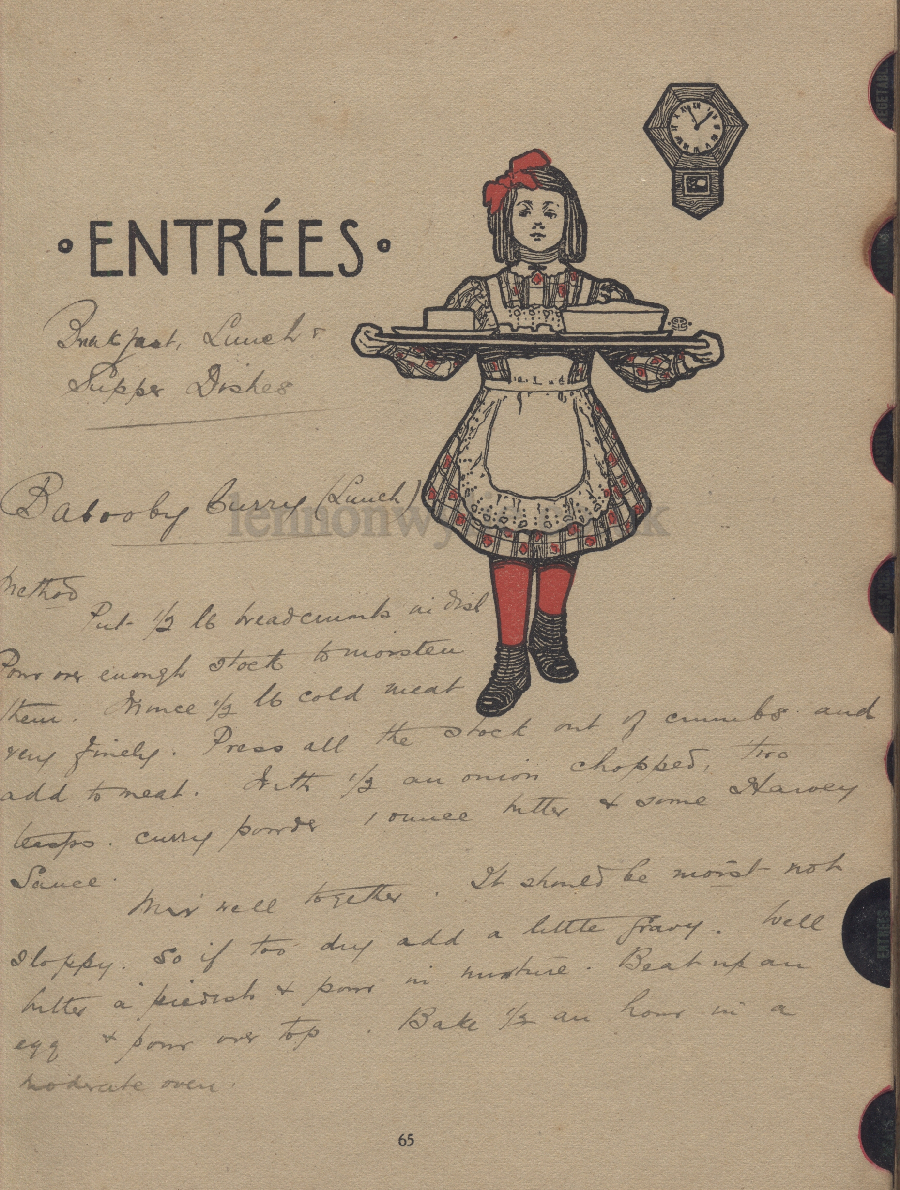 VEGETABLE
· ENTRÉES ·
Breakfast, Lunch &
Supper Dishes
Babooby Curry (Lunch)
lennonwy
Method
Put ½ lb breadcrumbs in dish
Pour over enough stock to moisten
them. Mince ½ lb cold meat
very finely. Press all the stock out of crumbs and
add to meat. With ½ an onion chopped, two
teasps. curry powder 1 ounce butter & some Harvey
Sauce.
Mix well together. It should be moist not
sloppy. So if too dry add a little gravy. Well
butter a piedish & pour in mixture. Beat up an
egg & pour over top. Bake ½ an hour in a
moderate oven.
ENTRÉES
65